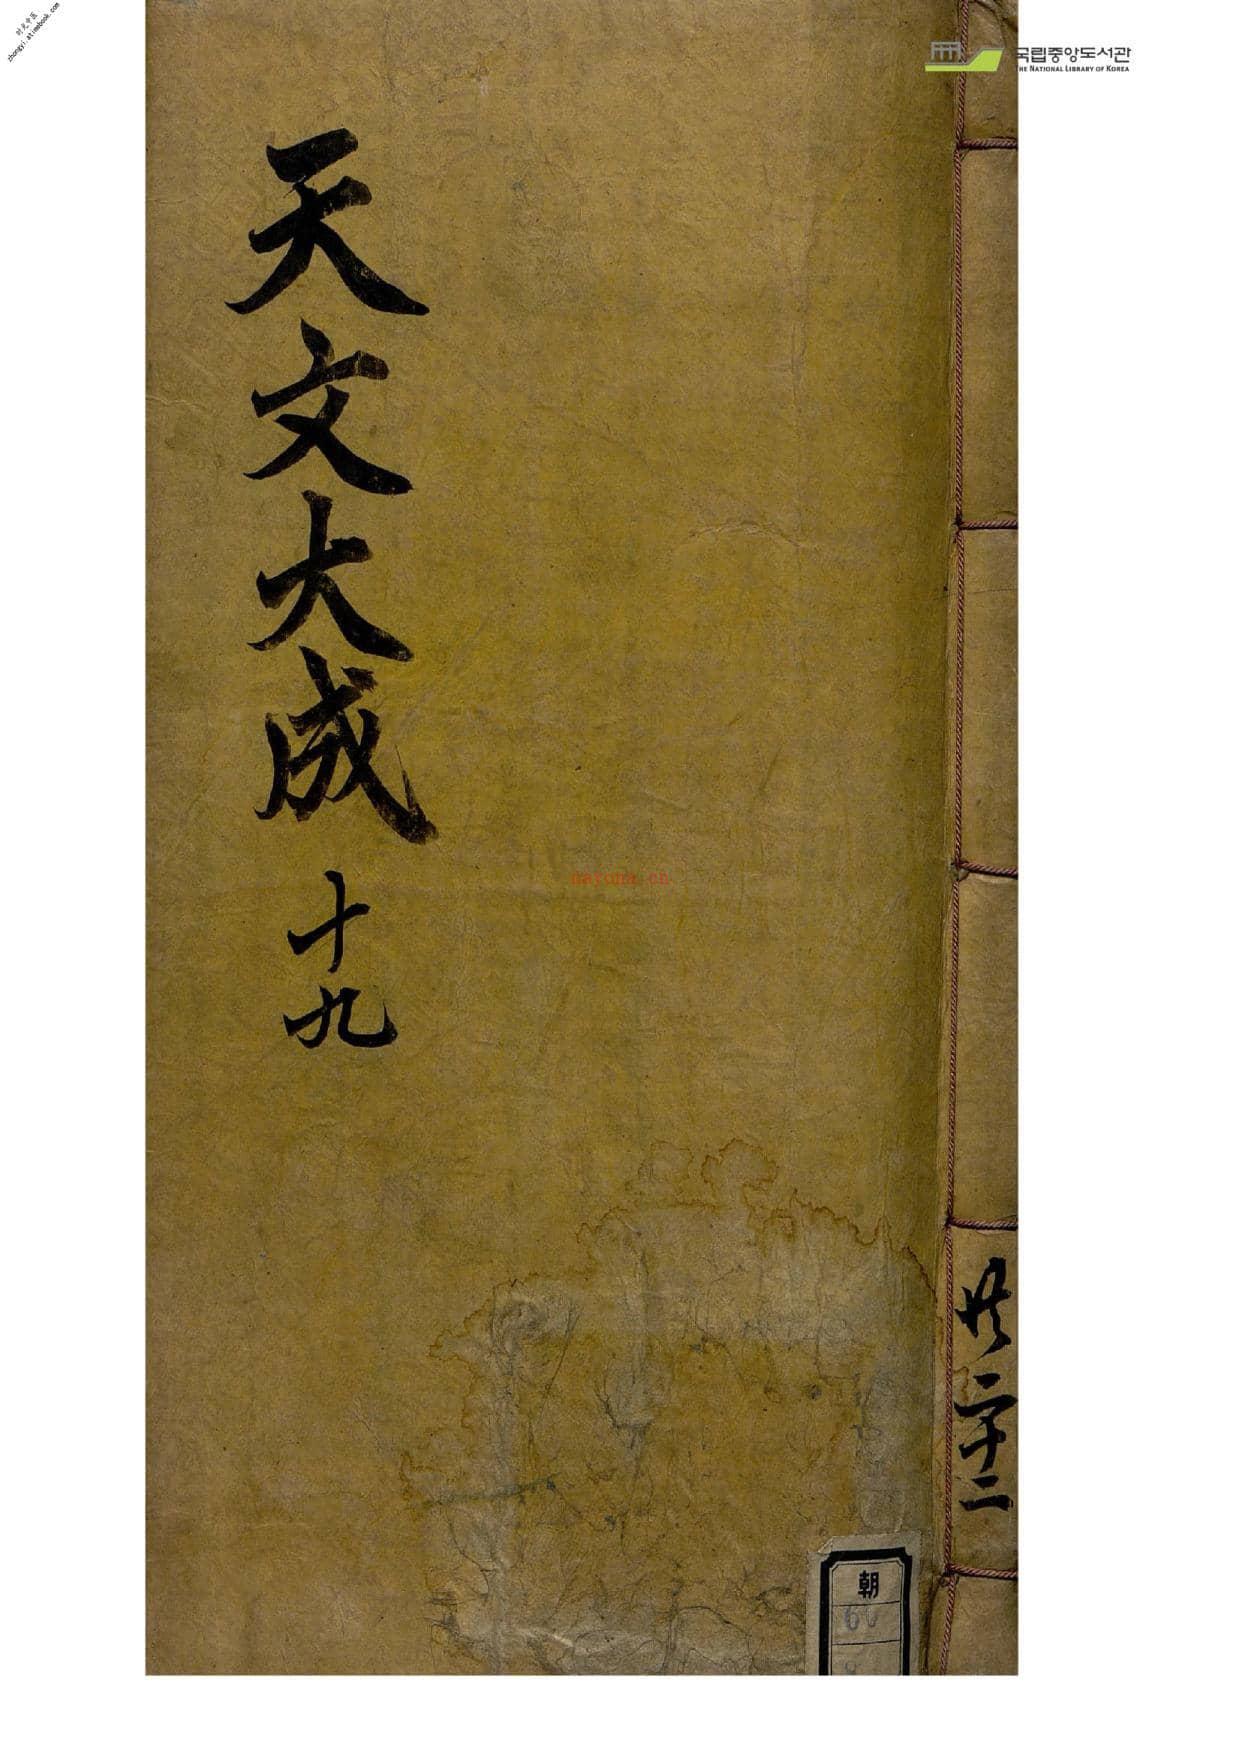 时光中医
zhongyi.atimebook.com
국립중앙도서관
THE NATIONAL LIBRARY OF KOREA
天文大成 十九
nayona.cn
共二十二
朝
60